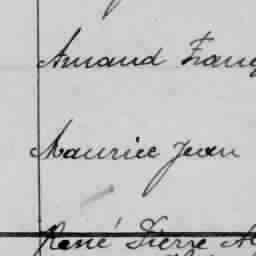 Armand Franç
Maurice Jean
René Pierre Al